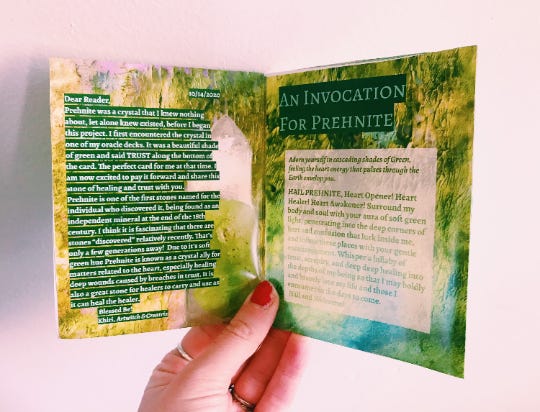 10/14/2020
Dear Reader,
Prehnite was a crystal that I knew nothing
about, let alone knew existed, before I began
this project. I first encountered the crystal in
one of my oracle decks. It was a beautiful shade
of green and said TRUST along the bottom of
the card. The perfect card for me at that time. I
am now excited to pay it forward and share this
stone of healing and trust with you.
Prehnite is one of the first stones named for the
individual who discovered it, being found as an
independent mineral at the end of the 18th
century. I think it is fascinating that there are
stones "discovered" relatively recently. That's
only a few generations away! Due to it's soft
green hue Prehnite is known as a crystal ally for
matters related to the heart, especially healing
deep wounds caused by breaches in trust. It is
also a great stone for healers to carry and use as
it can heal the healer.
Blessed Be,
Khiri, Artwitch &
AN INVOCATION
FOR PREHNITE
Adorn yourself in cascading shades of Green,
feeling the heart energy that pulses through the
Earth envelop you.
HAIL PREHNITE, Heart Opener! Heart
Healer! Heart Awakener! Surround my
body and soul with your aura of soft green
light, penetrating into the deep corners of
hurt and confusion that lurk inside me,
and infuse these places with your gentle
encouragement. Whisper a lullaby of
trust, serenity, and deep deep healing into
the depths of my being so that I may boldly
and bravely love my life and those I
encounter in the days to come.